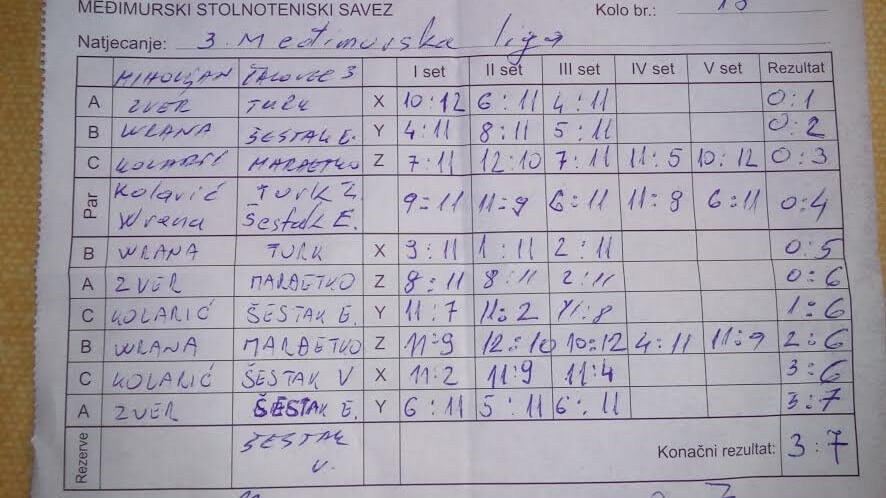 MEĐIMURSKI STOLNOTENISKI SAVEZ Kolo br.:
Natjecanje: 3. Međimurska liga
MIHOVLJAN ŠALOVEC 3 I set II set III set IV set V set Rezultat
A ZVER TURK X 10:12 6:11 4:11 0:1
B WRANA ŠESTAK E. Y 4:11 8:11 5:11 0:2
C KOLARIĆ MARĐETKO Z 7:11 12:10 7:11 11:5 10:12 0:3
Par Kolarić TURK Z 9:11 11:9 6:11 11:8 6:11 0:4
Wrana Šestak E.
B WRANA TURK X 9:11 1:11 2:11 0:5
A ZVER MARĐETKO Z 8:11 8:11 2:11 0:6
C KOLARIĆ ŠESTAK E. Y 11:7 11:2 11:8 1:6
B WRANA MARĐETKO Z 11:9 12:10 10:12 4:11 11:9 2:6
C KOLARIĆ ŠESTAK V X 11:2 11:9 11:4 3:6
A ZVER ŠESTAK E. Y 6:11 5:11 6:11 3:7
Rezerve ŠESTAK V. Konačni rezultat: 3:7